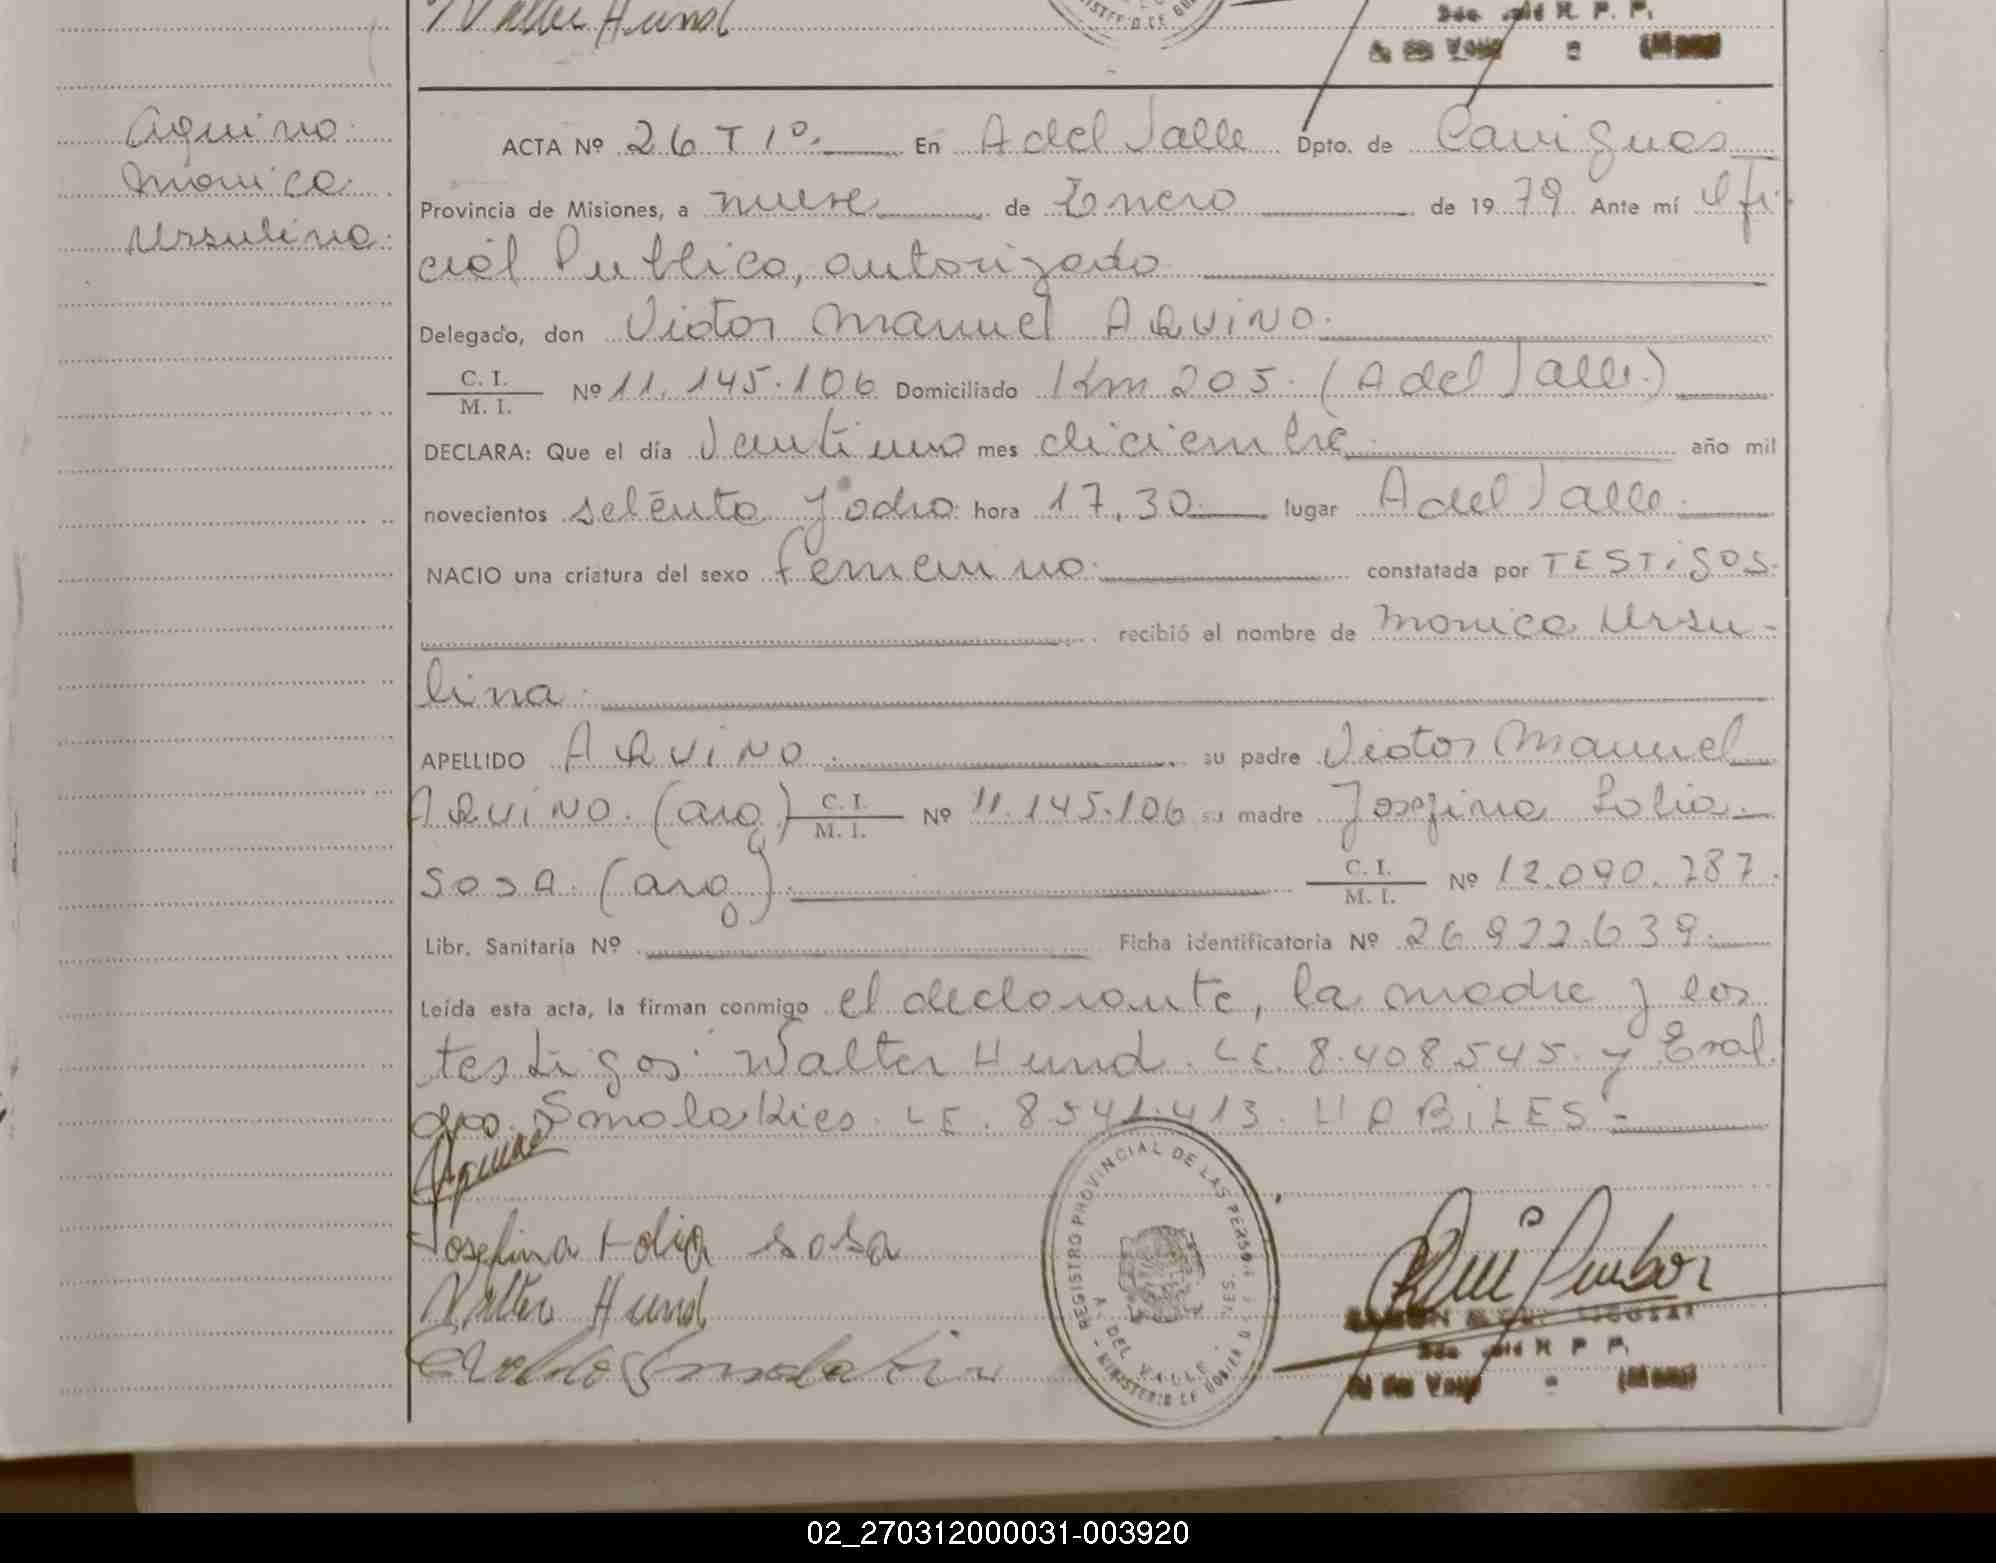 Walter Hund
R. P. P.
Aquino
Monica
Ursulina
ACTA Nº 26 T 1º. En A del Valle Dpto. de Cainguas
Provincia de Misiones, a nueve de Enero de 1979 Ante mí Ofi-
cial Publico, autorizado
Delegado, don Victor Manuel AQUINO.
C. I.
M. I. Nº 11.145.106 Domiciliado Km 205. (A del Valle.)
DECLARA: Que el día Veutiuno mes diciembre año mil
novecientos setenta y ocho hora 17,30 lugar A del Valle.
NACIO una criatura del sexo femenino. constatada por TESTiGOS.
recibió el nombre de Monica Ursu-
lina.
APELLIDO AQUiNO su padre Victor Manuel
AQUiNO. (arg) C. I.
M. I. Nº 11.145.106 su madre Josefina Lolia
SOSA. (arg). C. I.
M. I. Nº 12.090.287.
Libr. Sanitaria Nº Ficha identificatoria Nº 26.922.639.
Leída esta acta, la firman conmigo el declarante, la madre y los
testigos: Walter Hund. LE. 8.408545. y Eval
do. Smolakies. LE. 8541.413. HABiLES.=
Josefina Lolia sosa
Walter Hund
REGISTRO PROVINCIAL DE LAS PERSONAS
A. DEL VALLE
MINISTERIO DE GOBIERNO
R P P.
02_270312000031-003920